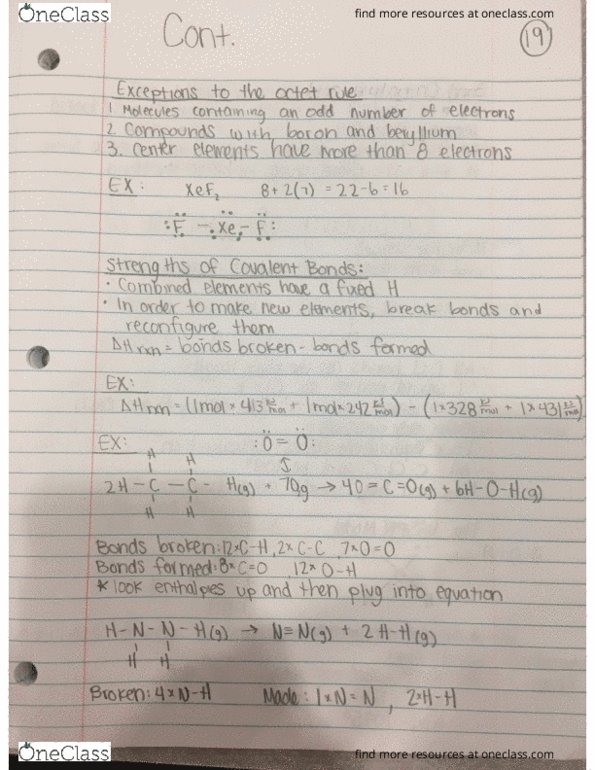 OneClass
find more resources at oneclass.com
Cont.
19
Exceptions to the octet rule
1. Molecules containing an odd number of electrons
2. Compounds with boron and beryllium
3. Center elements have more than 8 electrons
EX: XeF₂ 8+2(7) = 22-6 = 16
:F - Xe - F:
Strengths of Covalent Bonds:
• Combined elements have a fixed H
• In order to make new elements, break bonds and
reconfigure them
ΔHrxn = bonds broken - bonds formed
EX:
ΔHrxn = (1mol × 413 kJ/mol + 1mol × 242 kJ/mol) - (1×328 kJ/mol + 1×431 kJ/mol)
EX: :O = O:
H H
2H - C - C - H(g) + 7O₂g → 4O = C = O(g) + 6H-O-H(g)
H H
Bonds broken: 12×C-H, 2× C-C 7×O=O
Bonds formed: 8×C=O 12× O-H
* look enthalpies up and then plug into equation
H-N-N-H(g) → N≡N(g) + 2 H-H(g)
H H
Broken: 4×N-H Made: 1×N≡N, 2×H-H
OneClass
find more resources at oneclass.com